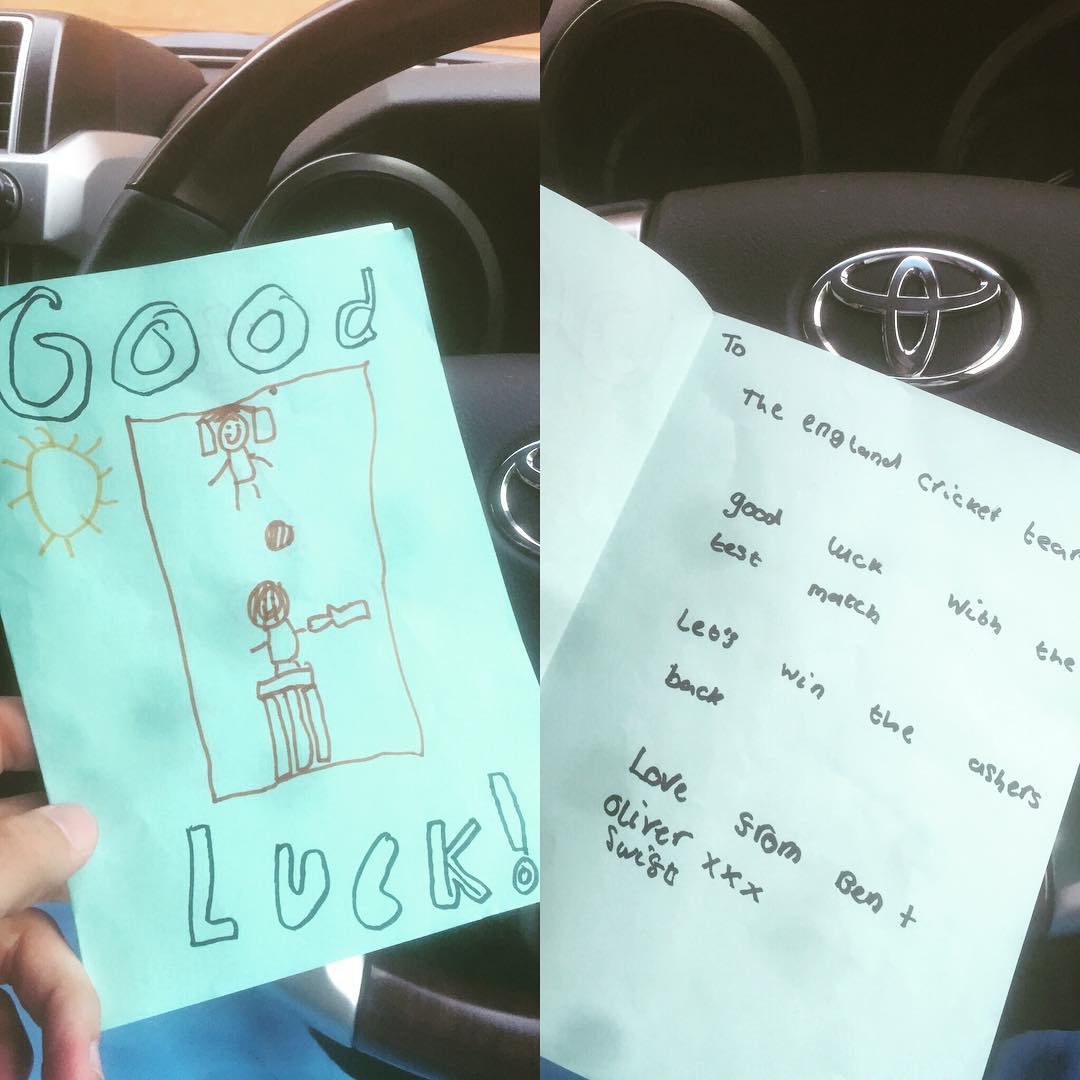 Good
LUCK!
To
The england cricket team
good luck with the
test match
Let's win the ashers
back
Love from Ben +
Oliver xxx